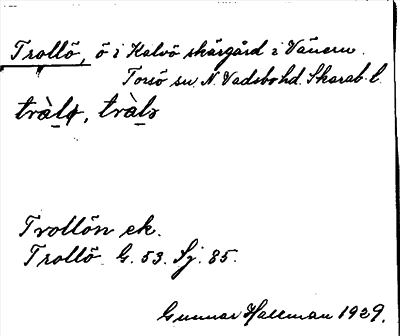 Trollö, ö i Kalvö skärgård i Vänern.
Torsö sn. N. Vadsbo hd. Skarab. l.
tràlø, tràlə
Trollön ek.
Trollö G. 53. Sj. 85.
Gunnar Hallman 1929.